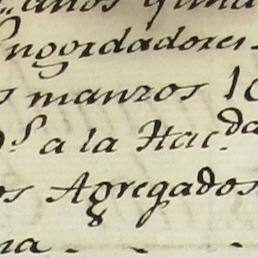 Engordadores
s manzos 10
a la Hac.da
os Agregados
na - - -